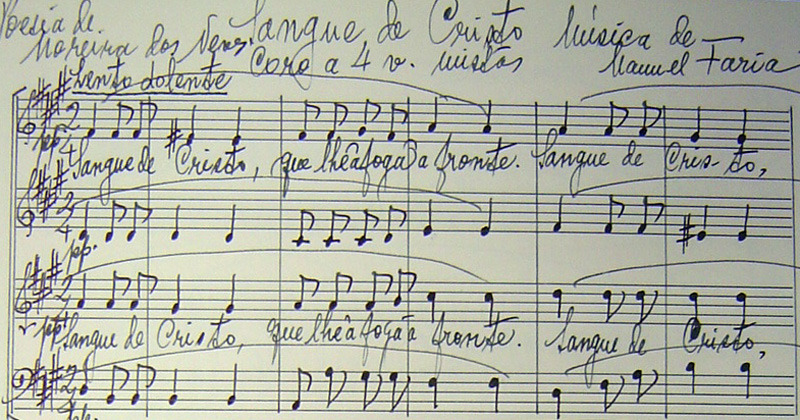 Poesia de Sangue de Cristo Música de
Moreira das Neves Coro a 4 v. mistas Manuel Faria
Lento dolente
pp.
Sangue de Cristo, que lhe afoga a fronte. Sangue de Cris-to,
pp.
pp.
Sangue de Cristo, que lhe afoga a fronte. Sangue de Cristo,
pp.